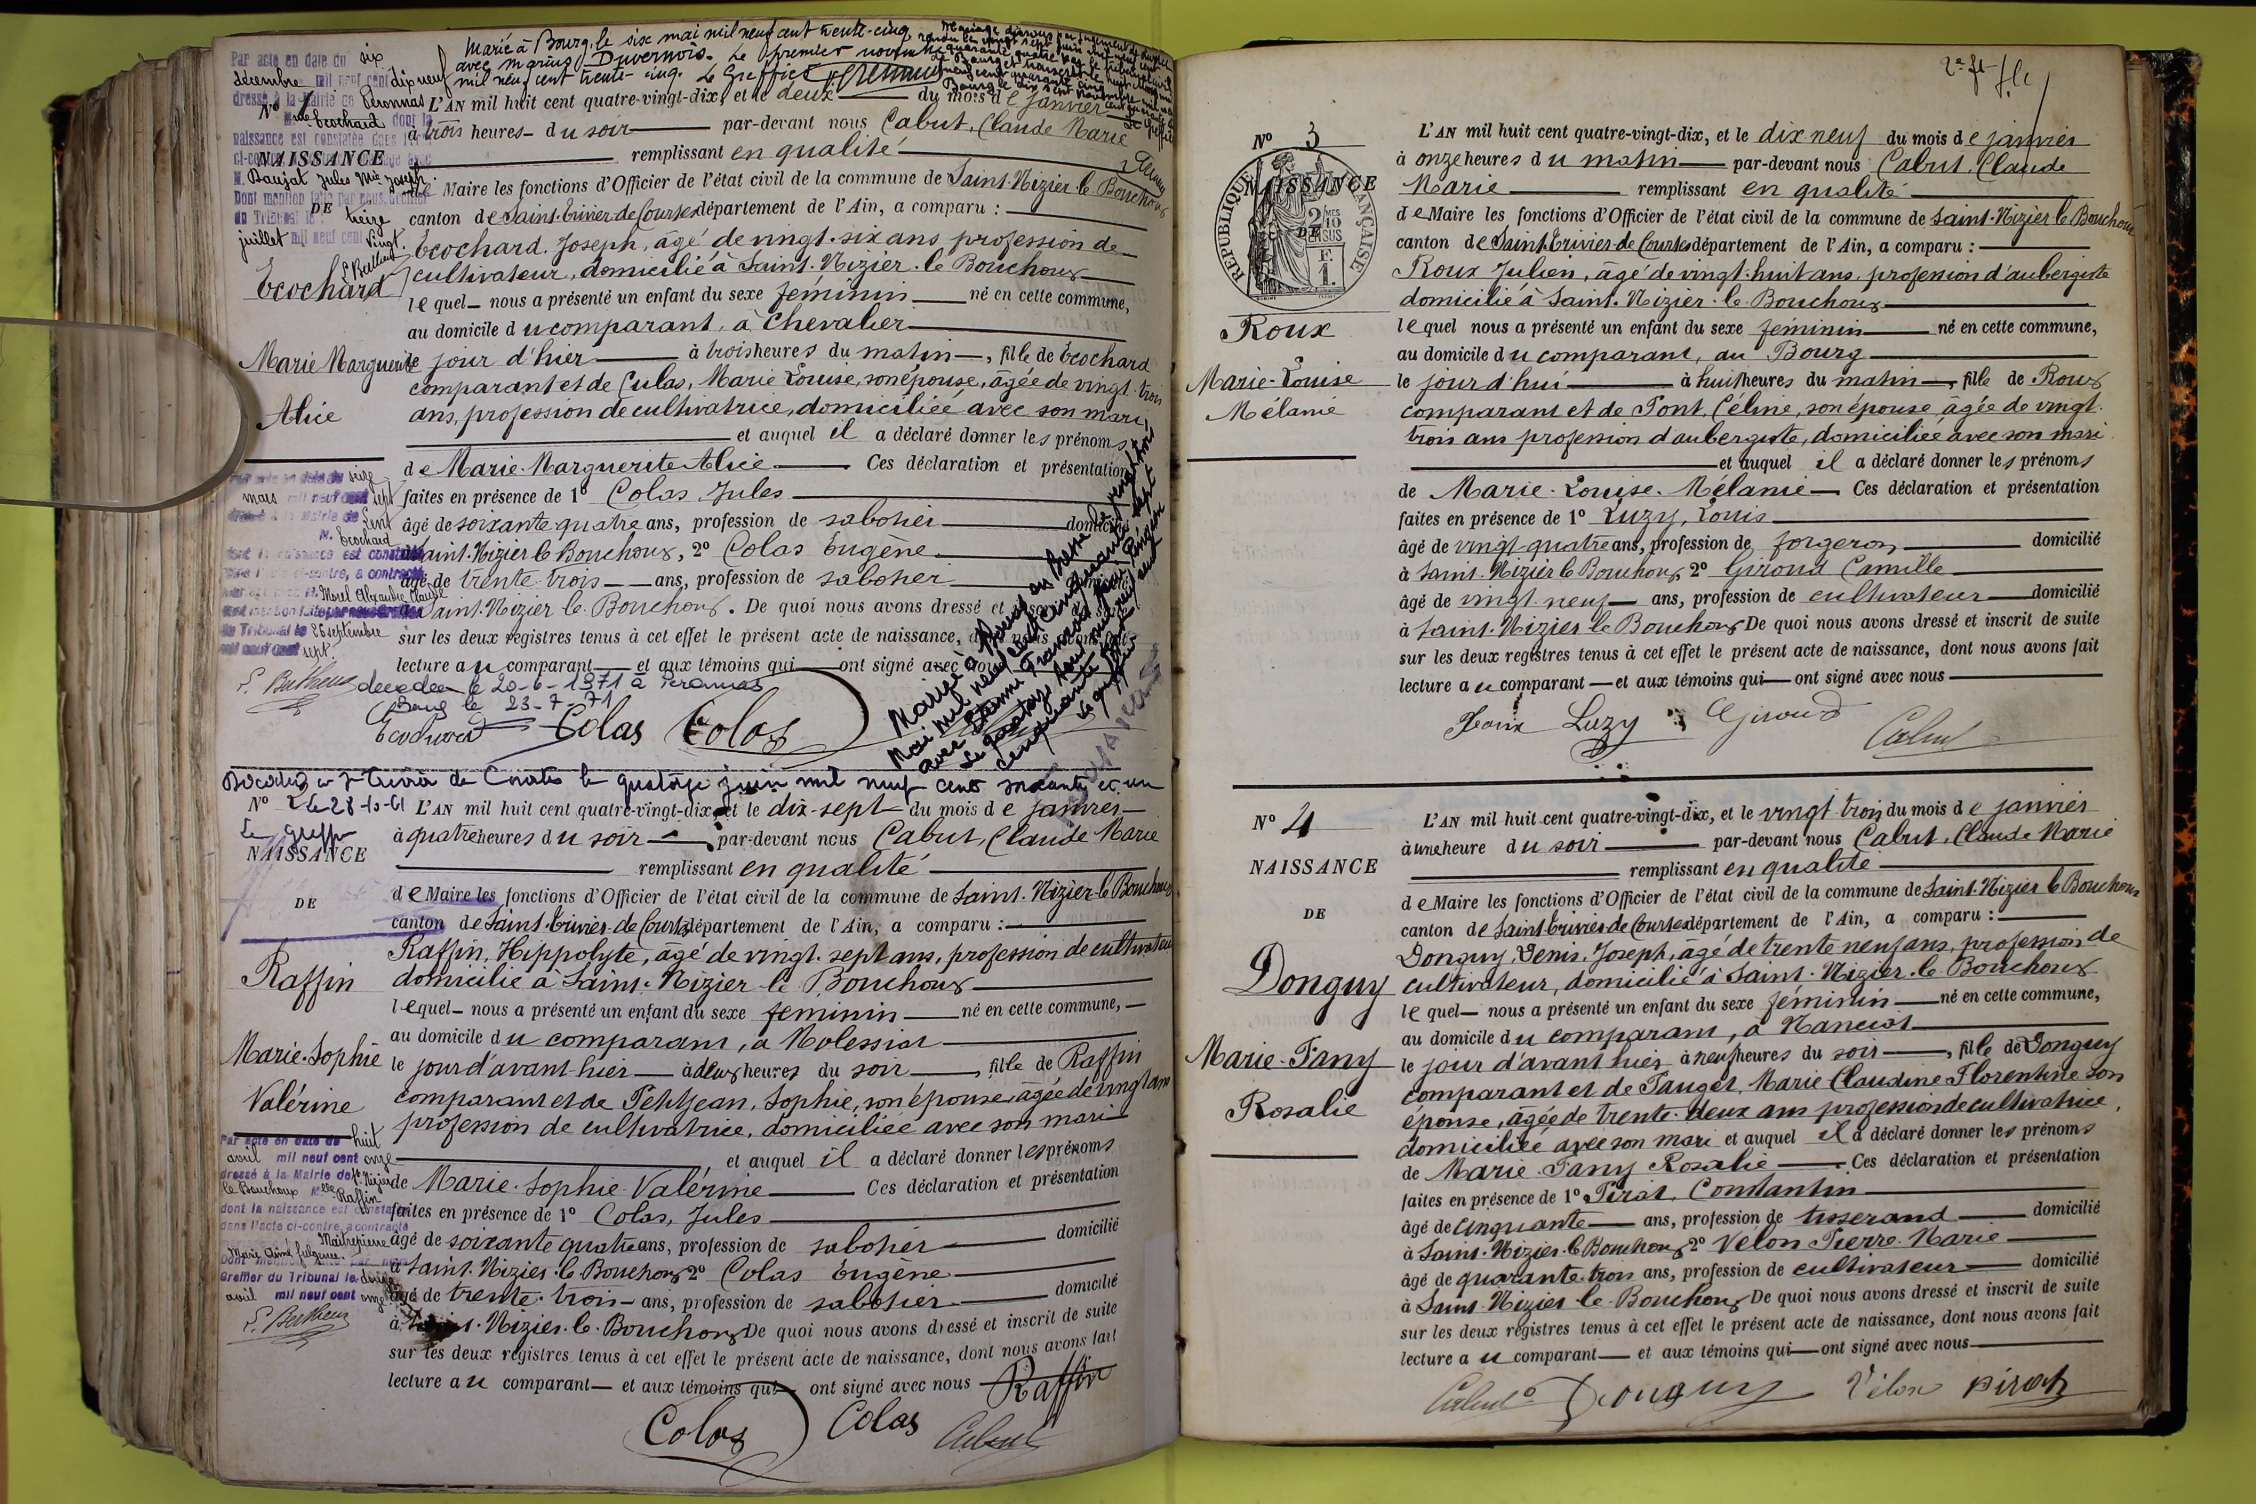 Marié à Bourg, le six mai mil neuf cent trente-cinq
avec Marius Duvernois. Le premier novembre
mil neuf cent trente-cinq. Le Greffier
Par acte en date du six
décembre mil neuf cent dix neuf
dressé à la Mairie de Péronnas
Ecochard dont la
naissance est constatée dans
ci-contre
M. Baujat Jules Mie Joseph
Dont mention faite par nous Greffier
du Tribunal le treize
juillet mil neuf cent vingt.
No 1
NAISSANCE
DE
Ecochard
Marie Marguerite
Alice
L'AN mil huit cent quatre-vingt-dix, et le deux du mois de janvier
à trois heures du soir par-devant nous Cabut, Claude Marie
remplissant en qualité
de Maire les fonctions d'Officier de l'état civil de la commune de Saint-Nizier-le Bouchoux
canton de Saint-Trivier de Courtes département de l'Ain, a comparu :
Ecochard, Joseph, âgé de vingt-six ans, profession de
cultivateur, domicilié à Saint-Nizier-le Bouchoux
lequel nous a présenté un enfant du sexe féminin né en cette commune,
au domicile du comparant, à Chevalier
le jour d'hier à trois heures du matin, fille de Ecochard
comparant et de Culas, Marie Louise, son épouse, âgée de vingt-trois
ans, profession de cultivatrice, domiciliée avec son mari
et auquel il a déclaré donner les prénoms
de Marie-Marguerite Alice Ces déclaration et présentation
faites en présence de 1º Colas, Jules
âgé de soixante quatre ans, profession de sabotier domicilié
à Saint-Nizier le Bouchoux, 2º Colas Eugène
âgé de trente trois ans, profession de sabotier
à Saint-Nizier-le-Bouchoux. De quoi nous avons dressé et
sur les deux registres tenus à cet effet le présent acte de naissance,
lecture au comparant et aux témoins qui ont signé avec nous
Par acte en date du seize
mars mil neuf cent sept
dressé à la Mairie de Lent
M. Ecochard
dont la naissance est constatée
dans l'acte ci-contre, a contracté
Morel Alexandre Claude
du Tribunal le 26 septembre
mil neuf cent sept.
décédée le 20-6-1971 à Péronnas
Bourg le 23-7-71
Ecochard Colas Colas
Décédée à St Trivier de Courtes le quatorze juin mil neuf cent soixante et un
le 28-10-61
Le greffier
No 2
NAISSANCE
DE
Raffin
Marie-Sophie
Valérine
L'AN mil huit cent quatre-vingt-dix, et le dix-sept du mois de janvier
à quatre heures du soir par-devant nous Cabut, Claude Marie
remplissant en qualité
de Maire les fonctions d'Officier de l'état civil de la commune de Saint-Nizier-le Bouchoux
canton de Saint-Trivier-de Courtes département de l'Ain, a comparu :
Raffin, Hippolyte, âgé de vingt-sept ans, profession de cultivateur
domicilié à Saint-Nizier le Bouchoux
lequel nous a présenté un enfant du sexe féminin né en cette commune,
au domicile du comparant, à Molessiat
le jour d'avant-hier à deux heures du soir, fille de Raffin
comparant et de Petitjean, Sophie, son épouse âgée de vingt ans
profession de cultivatrice, domiciliée avec son mari
et auquel il a déclaré donner les prénoms
de Marie-Sophie Valérine Ces déclaration et présentation
faites en présence de 1º Colas, Jules
âgé de soixante quatre ans, profession de sabotier domicilié
à Saint-Nizier-le Bouchoux 2º Colas Eugène
âgé de trente-trois ans, profession de sabotier domicilié
à Saint-Nizier-le-Bouchoux De quoi nous avons dressé et inscrit de suite
sur les deux registres tenus à cet effet le présent acte de naissance, dont nous avons fait
lecture au comparant et aux témoins qui ont signé avec nous Raffin
Par acte en date du huit
avril mil neuf cent onze
dressé à la Mairie de St Nizier
le Bouchoux Melle Raffin
dont la naissance est constatée
dans l'acte ci-contre, a contracté
Maitrepierre
Marie Aimé fulgence.
Greffier du Tribunal le douze
avril mil neuf cent onze
Colas Colas Cabut
No 3
NAISSANCE
DE
RÉPUBLIQUE FRANÇAISE
Roux
Marie-Louise
Mélanie
L'AN mil huit cent quatre-vingt-dix, et le dix neuf du mois de janvier
à onze heures du matin par-devant nous Cabut, Claude
Marie remplissant en qualité
de Maire les fonctions d'Officier de l'état civil de la commune de Saint-Nizier le Bouchoux
canton de Saint-Trivier de Courtes département de l'Ain, a comparu :
Roux Julien, âgé de vingt-huit ans, profession d'aubergiste
domicilié à Saint-Nizier-le-Bouchoux
lequel nous a présenté un enfant du sexe féminin né en cette commune,
au domicile du comparant, au Bourg
le jour d'hui à huit heures du matin, fille de Roux
comparant et de Pont, Céline, son épouse âgée de vingt-
trois ans profession d'aubergiste, domiciliée avec son mari
et auquel il a déclaré donner les prénoms
de Marie-Louise-Mélanie Ces déclaration et présentation
faites en présence de 1º Luzy, Louis
âgé de vingt-quatre ans, profession de forgeron domicilié
à Saint-Nizier le Bouchoux 2º Giroud Camille
âgé de vingt-neuf ans, profession de cultivateur domicilié
à Saint-Nizier le Bouchoux De quoi nous avons dressé et inscrit de suite
sur les deux registres tenus à cet effet le présent acte de naissance, dont nous avons fait
lecture au comparant et aux témoins qui ont signé avec nous
Roux Luzy Giroud Cabut
No 4
NAISSANCE
DE
Donguy
Marie-Fany
Rosalie
L'AN mil huit cent quatre-vingt-dix, et le vingt trois du mois de janvier
à une heure du soir par-devant nous Cabut, Claude Marie
remplissant en qualité
de Maire les fonctions d'Officier de l'état civil de la commune de Saint-Nizier le Bouchoux
canton de Saint-Trivier de Courtes département de l'Ain, a comparu :
Donguy, Denis, Joseph, âgé de trente neuf ans, profession de
cultivateur, domicilié à Saint-Nizier-le Bouchoux
lequel nous a présenté un enfant du sexe féminin né en cette commune,
au domicile du comparant, à Manciat
le jour d'avant hier à neuf heures du soir, fille de Donguy
comparant et de Pauget, Marie Claudine Florentine son
épouse, âgée de trente-deux ans profession de cultivatrice,
domiciliée avec son mari et auquel il a déclaré donner les prénoms
de Marie Fany Rosalie Ces déclaration et présentation
faites en présence de 1º Pirat, Constantin
âgé de cinquante ans, profession de tisserand domicilié
à Saint-Nizier-le Bouchoux 2º Velon Pierre-Marie
âgé de quarante-trois ans, profession de cultivateur domicilié
à Saint-Nizier-le-Bouchoux De quoi nous avons dressé et inscrit de suite
sur les deux registres tenus à cet effet le présent acte de naissance, dont nous avons fait
lecture au comparant et aux témoins qui ont signé avec nous
Cabut Donguy Vélon Pirat